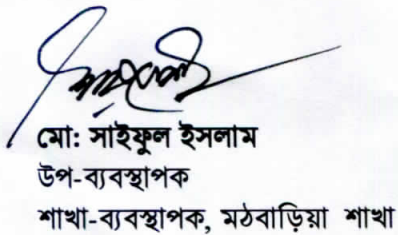 মো: সাইফুল ইসলাম
উপ-ব্যবস্থাপক
শাখা-ব্যবস্থাপক, মঠবাড়িয়া শাখা